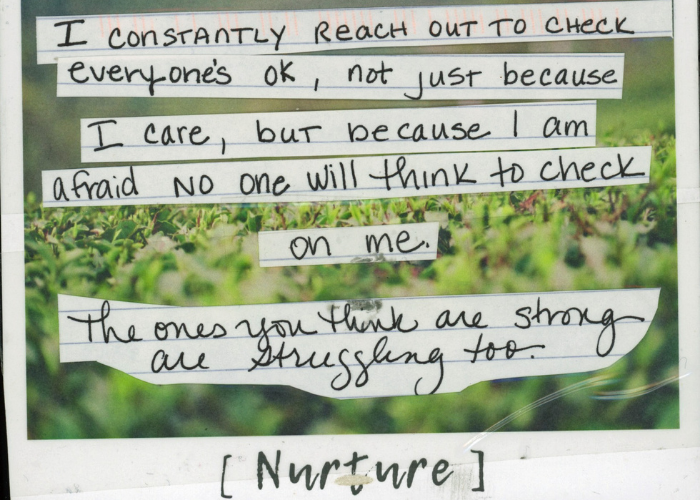 I CONSTANTLY REACH OUT TO CHECK
everyone's OK, not just because
I care, but because I am
afraid NO one will think to check
on me.
The ones you think are strong
are struggling too.
[Nurture]